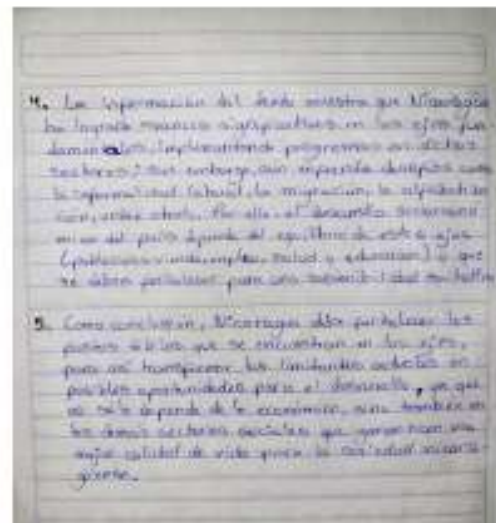 4. La información del texto muestra que Nicaragua
ha logrado avances significativos en los ejes fun
damentales, implementando programas en estos
sectores; sin embargo, aún enfrenta desafíos como
la informalidad laboral, la migración, la alfabetiza
ción, entre otros. Por ello, el desarrollo
del país depende del equilibrio de estos ejes
(población y vivienda, empleo, salud y educación) y que
se deben fortalecer para una
5. Como conclusión, Nicaragua debe fortalecer los
puntos débiles que se encuentran en los ejes,
para así transformar las limitantes actuales en
posibles oportunidades para el desarrollo, ya que
no solo depende de lo económico, sino también en
los demás sectores sociales que garanticen una
mejor calidad de vida para la sociedad nicara
güense.